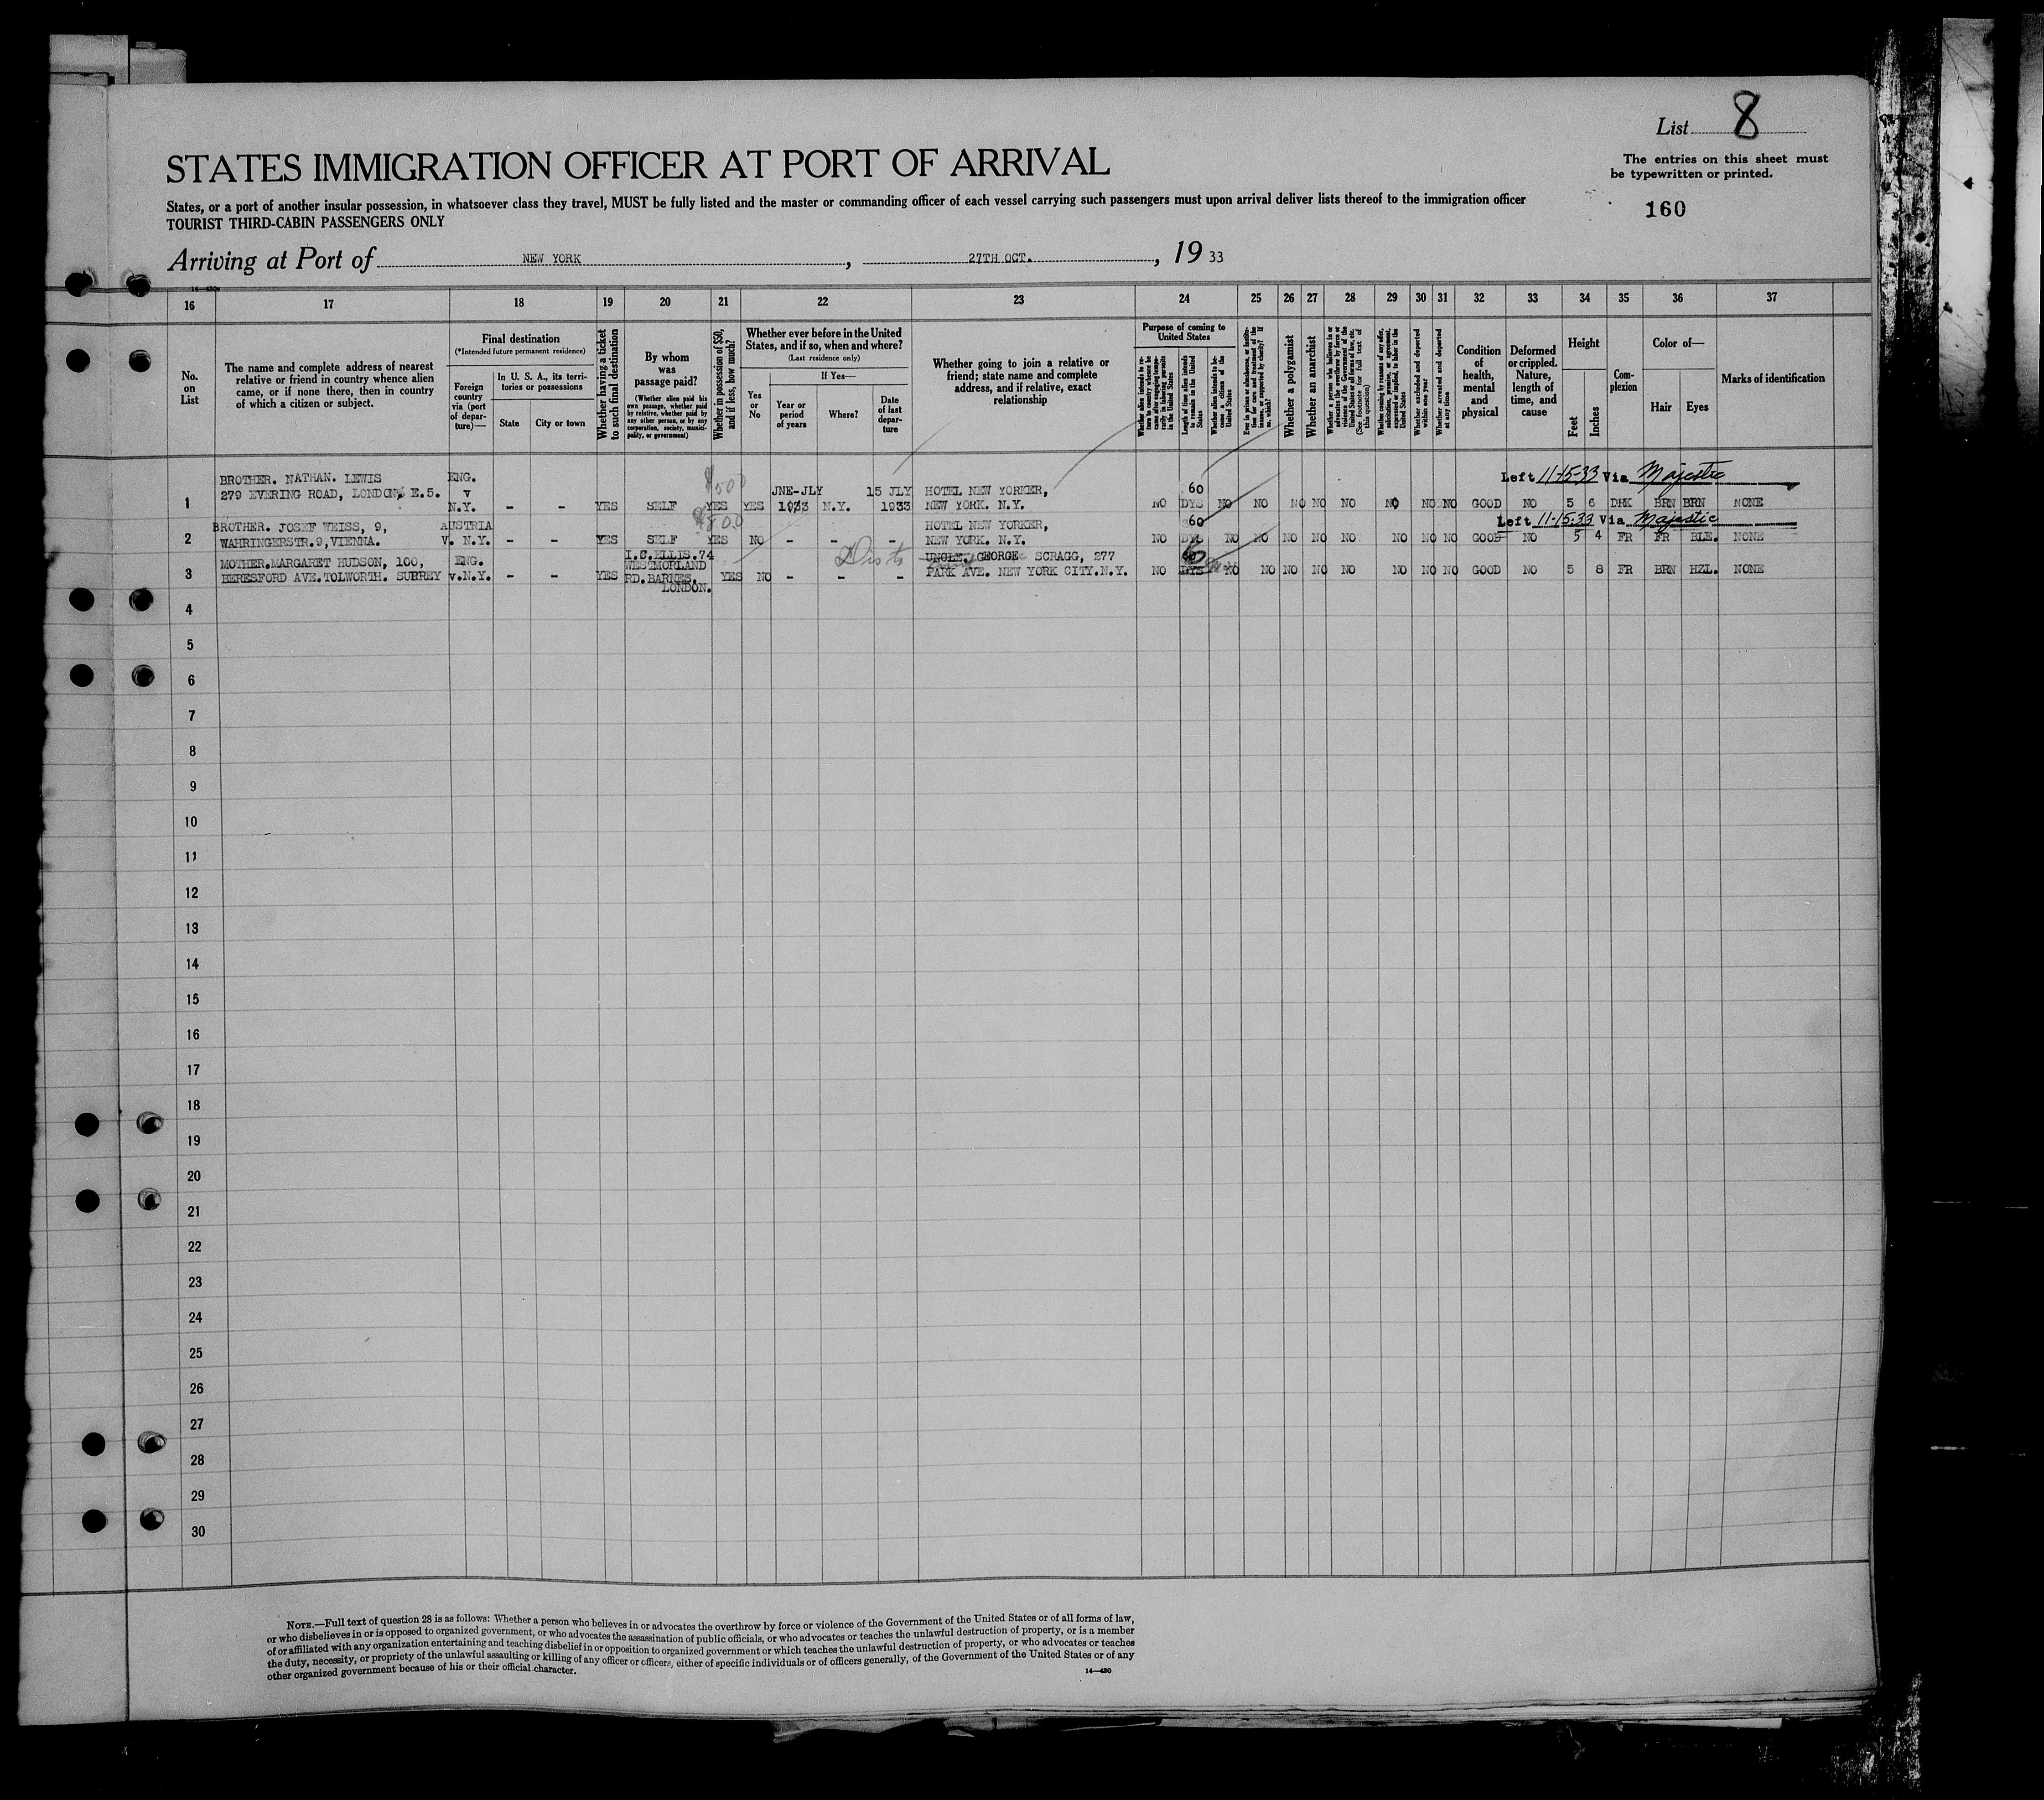 List 8
STATES IMMIGRATION OFFICER AT PORT OF ARRIVAL
The entries on this sheet must
be typewritten or printed.
States, or a port of another insular possession, in whatsoever class they travel, MUST be fully listed and the master or commanding officer of each vessel carrying such passengers must upon arrival deliver lists thereof to the immigration officer
TOURIST THIRD-CABIN PASSENGERS ONLY
160
Arriving at Port of NEW YORK, 27TH OCT., 19 33
16 17 18 19 20 21 22 23 24 25 26 27 28 29 30 31 32 33 34 35 36 37
No. on List
The name and complete address of nearest
relative or friend in country whence alien
came, or if none there, then in country
of which a citizen or subject.
Final destination
(*Intended future permanent residence)
Foreign country via (port of departure)—
In U. S. A., its territories or possessions
State
City or town
Whether having a ticket to such final destination
By whom was passage paid?
(Whether alien paid his own passage, whether paid by relative, whether paid by any other person, or by any corporation, society, municipality, or government)
Whether in possession of $50, and if less, how much?
Whether ever before in the United
States, and if so, when and where?
(Last residence only)
Yes or No
If Yes—
Year or period of years
Where?
Date of last departure
Whether going to join a relative or
friend; state name and complete
address, and if relative, exact
relationship
Purpose of coming to United States
Length of time alien intends to remain in the United States
Whether a polygamist
Whether an anarchist
Whether arrested and deported within one year
Condition of health, mental and physical
Deformed or crippled. Nature, length of time, and cause
Height
Feet
Inches
Complexion
Color of—
Hair
Eyes
Marks of identification
Left 11-15-33 Via Majestic
BROTHER. NATHAN. LEWIS ENG.
279 EVERING ROAD, LONDON, E.5. v $500 JNE-JLY 15 JLY HOTEL NEW YORKER, 60
1 N.Y. - - YES SELF YES YES 1933 N.Y. 1933 NEW YORK. N.Y. NO DYS NO NO NO NO NO NO NO NO GOOD NO 5 6 DRK BRN BRN NONE
Left 11-15-33 Via Majestic
BROTHER. JOSEF WEISS, 9, AUSTRIA $800 HOTEL NEW YORKER, 60
2 WAHRINGERSTR.9,VIENNA. v. N.Y. - - YES SELF YES NO - - - NEW YORK. N.Y. NO DYS NO NO NO NO NO NO NO NO GOOD NO 5 4 FR FR BLE. NONE
MOTHER.MARGARET HUDSON, 100, ENG. I.C.ELLIS.74 UNCLE. GEORGE SCRAGG, 277
3 HERESFORD AVE.TOLWORTH. SURREY v.N.Y. - - YES WESTMORLAND RD.BARNES. LONDON. YES NO - - - PARK AVE. NEW YORK CITY.N.Y. NO DYS NO NO NO NO NO NO NO NO GOOD NO 5 8 FR BRN HZL. NONE
4
5
6
7
8
9
10
11
12
13
14
15
16
17
18
19
20
21
22
23
24
25
26
27
28
29
30
NOTE.—Full text of question 28 is as follows: Whether a person who believes in or advocates the overthrow by force or violence of the Government of the United States or of all forms of law,
or who disbelieves in or is opposed to organized government, or who advocates the assassination of public officials, or who advocates or teaches the unlawful destruction of property, or is a member
of or affiliated with any organization entertaining and teaching disbelief in or opposition to organized government or which teaches the unlawful destruction of property, or who advocates or teaches
the duty, necessity, or propriety of the unlawful assaulting or killing of any officer or officers, either of specific individuals or of officers generally, of the Government of the United States or of any
other organized government because of his or their official character.
14—430